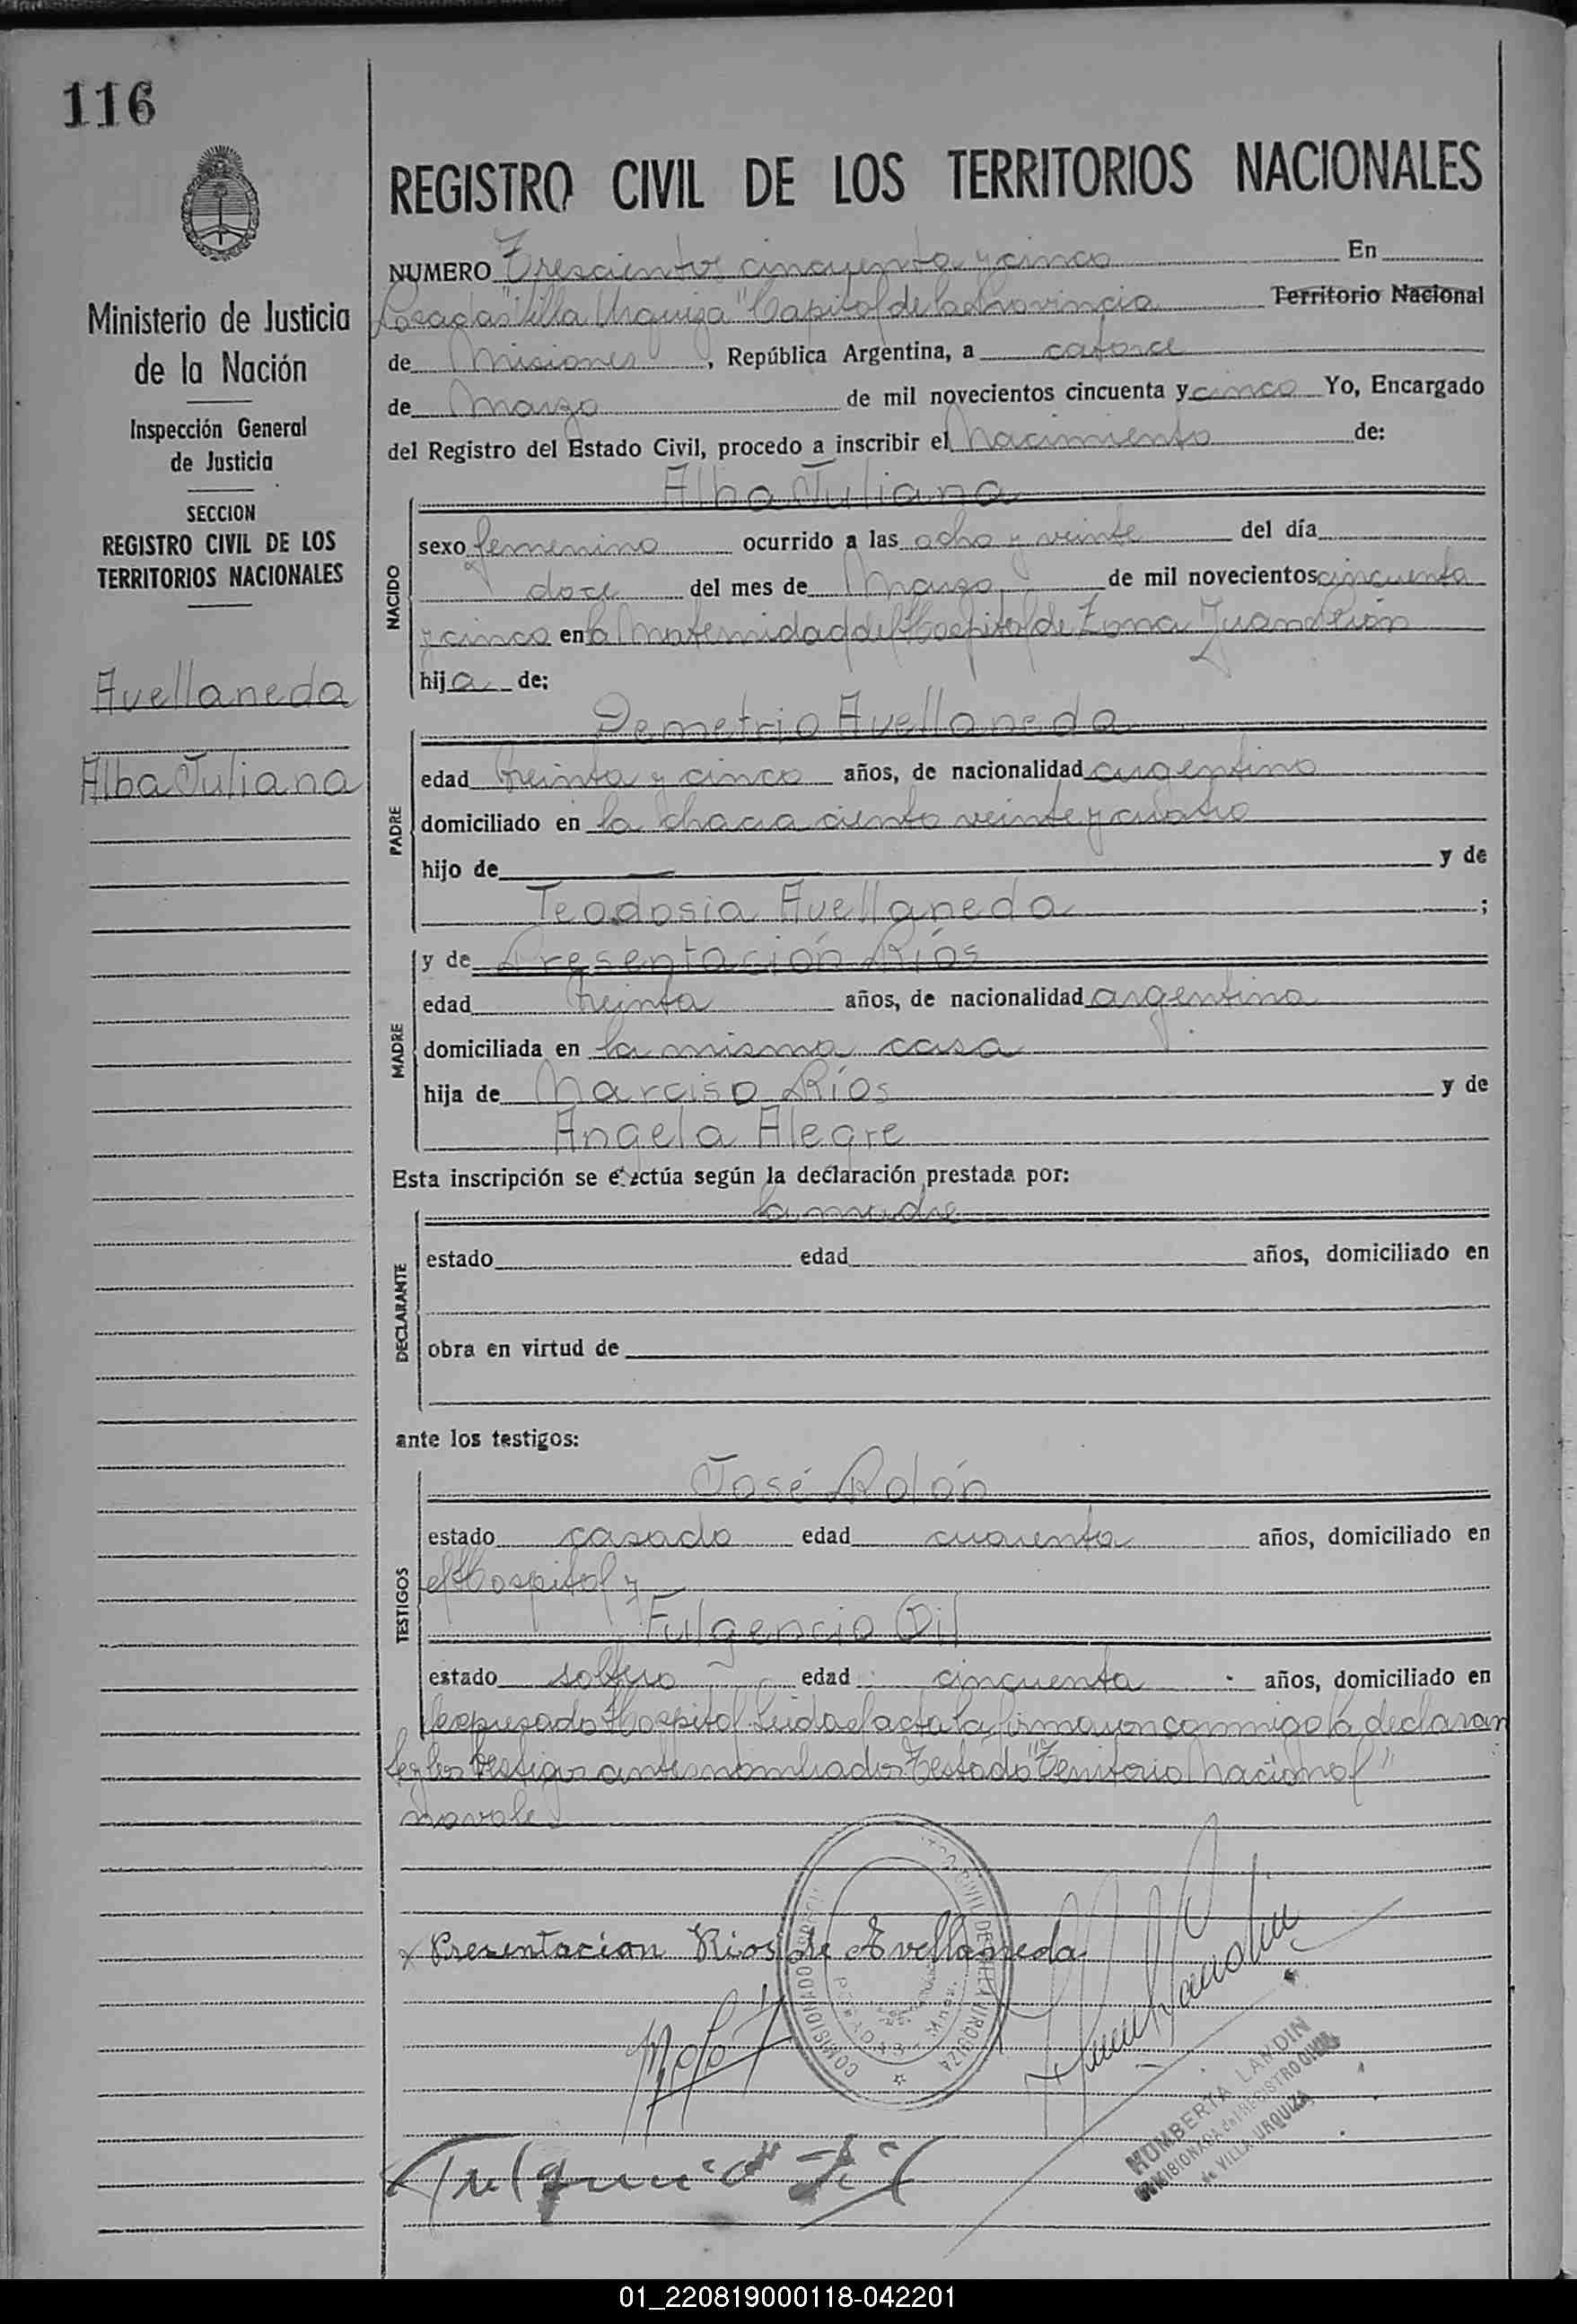 116
REGISTRO CIVIL DE LOS TERRITORIOS NACIONALES
Ministerio de Justicia
de la Nación
Inspección General
de Justicia
SECCION
REGISTRO CIVIL DE LOS
TERRITORIOS NACIONALES
Avellaneda
Alba Juliana
NUMERO Trescientos cincuenta y cinco En
Posadas "Villa Urquiza" Capital de la Provincia Territorio Nacional
de Misiones, República Argentina, a catorce
de Marzo de mil novecientos cincuenta y cinco Yo, Encargado
del Registro del Estado Civil, procedo a inscribir el Nacimiento de:
Alba Juliana
NACIDO
sexo femenino ocurrido a las ocho y veinte del día
doce del mes de Marzo de mil novecientos cincuenta
y cinco en la Maternidad del Hospital de Zona Juan Perón
hija de:
Demetrio Avellaneda
PADRE
edad treinta y cinco años, de nacionalidad argentino
domiciliado en la chacra ciento veinte y cuatro
hijo de — y de
Teodosia Avellaneda ;
MADRE
y de Presentación Ríos
edad treinta años, de nacionalidad argentina
domiciliada en la misma casa
hija de Narciso Ríos y de
Angela Alegre
Esta inscripción se efectúa según la declaración prestada por:
la madre
DECLARANTE
estado edad años, domiciliado en
obra en virtud de
ante los testigos:
José Rolón
TESTIGOS
estado casado edad cuarenta años, domiciliado en
el Hospital y
Fulgencio Gil
estado soltero edad cincuenta años, domiciliado en
expresado Hospital Leida el acta la firmaron conmigo la declaran
te y los testigos antes nombrados Testado "Territorio Nacional"
no vale
x Presentacion Rios de Avellaneda
COMISIONADO VILLA URQUIZA
POSADAS - Mnes.
HUMBERTA LANDIN
COMISIONADA del REGISTRO CIVIL
de VILLA URQUIZA
01_220819000118-042201